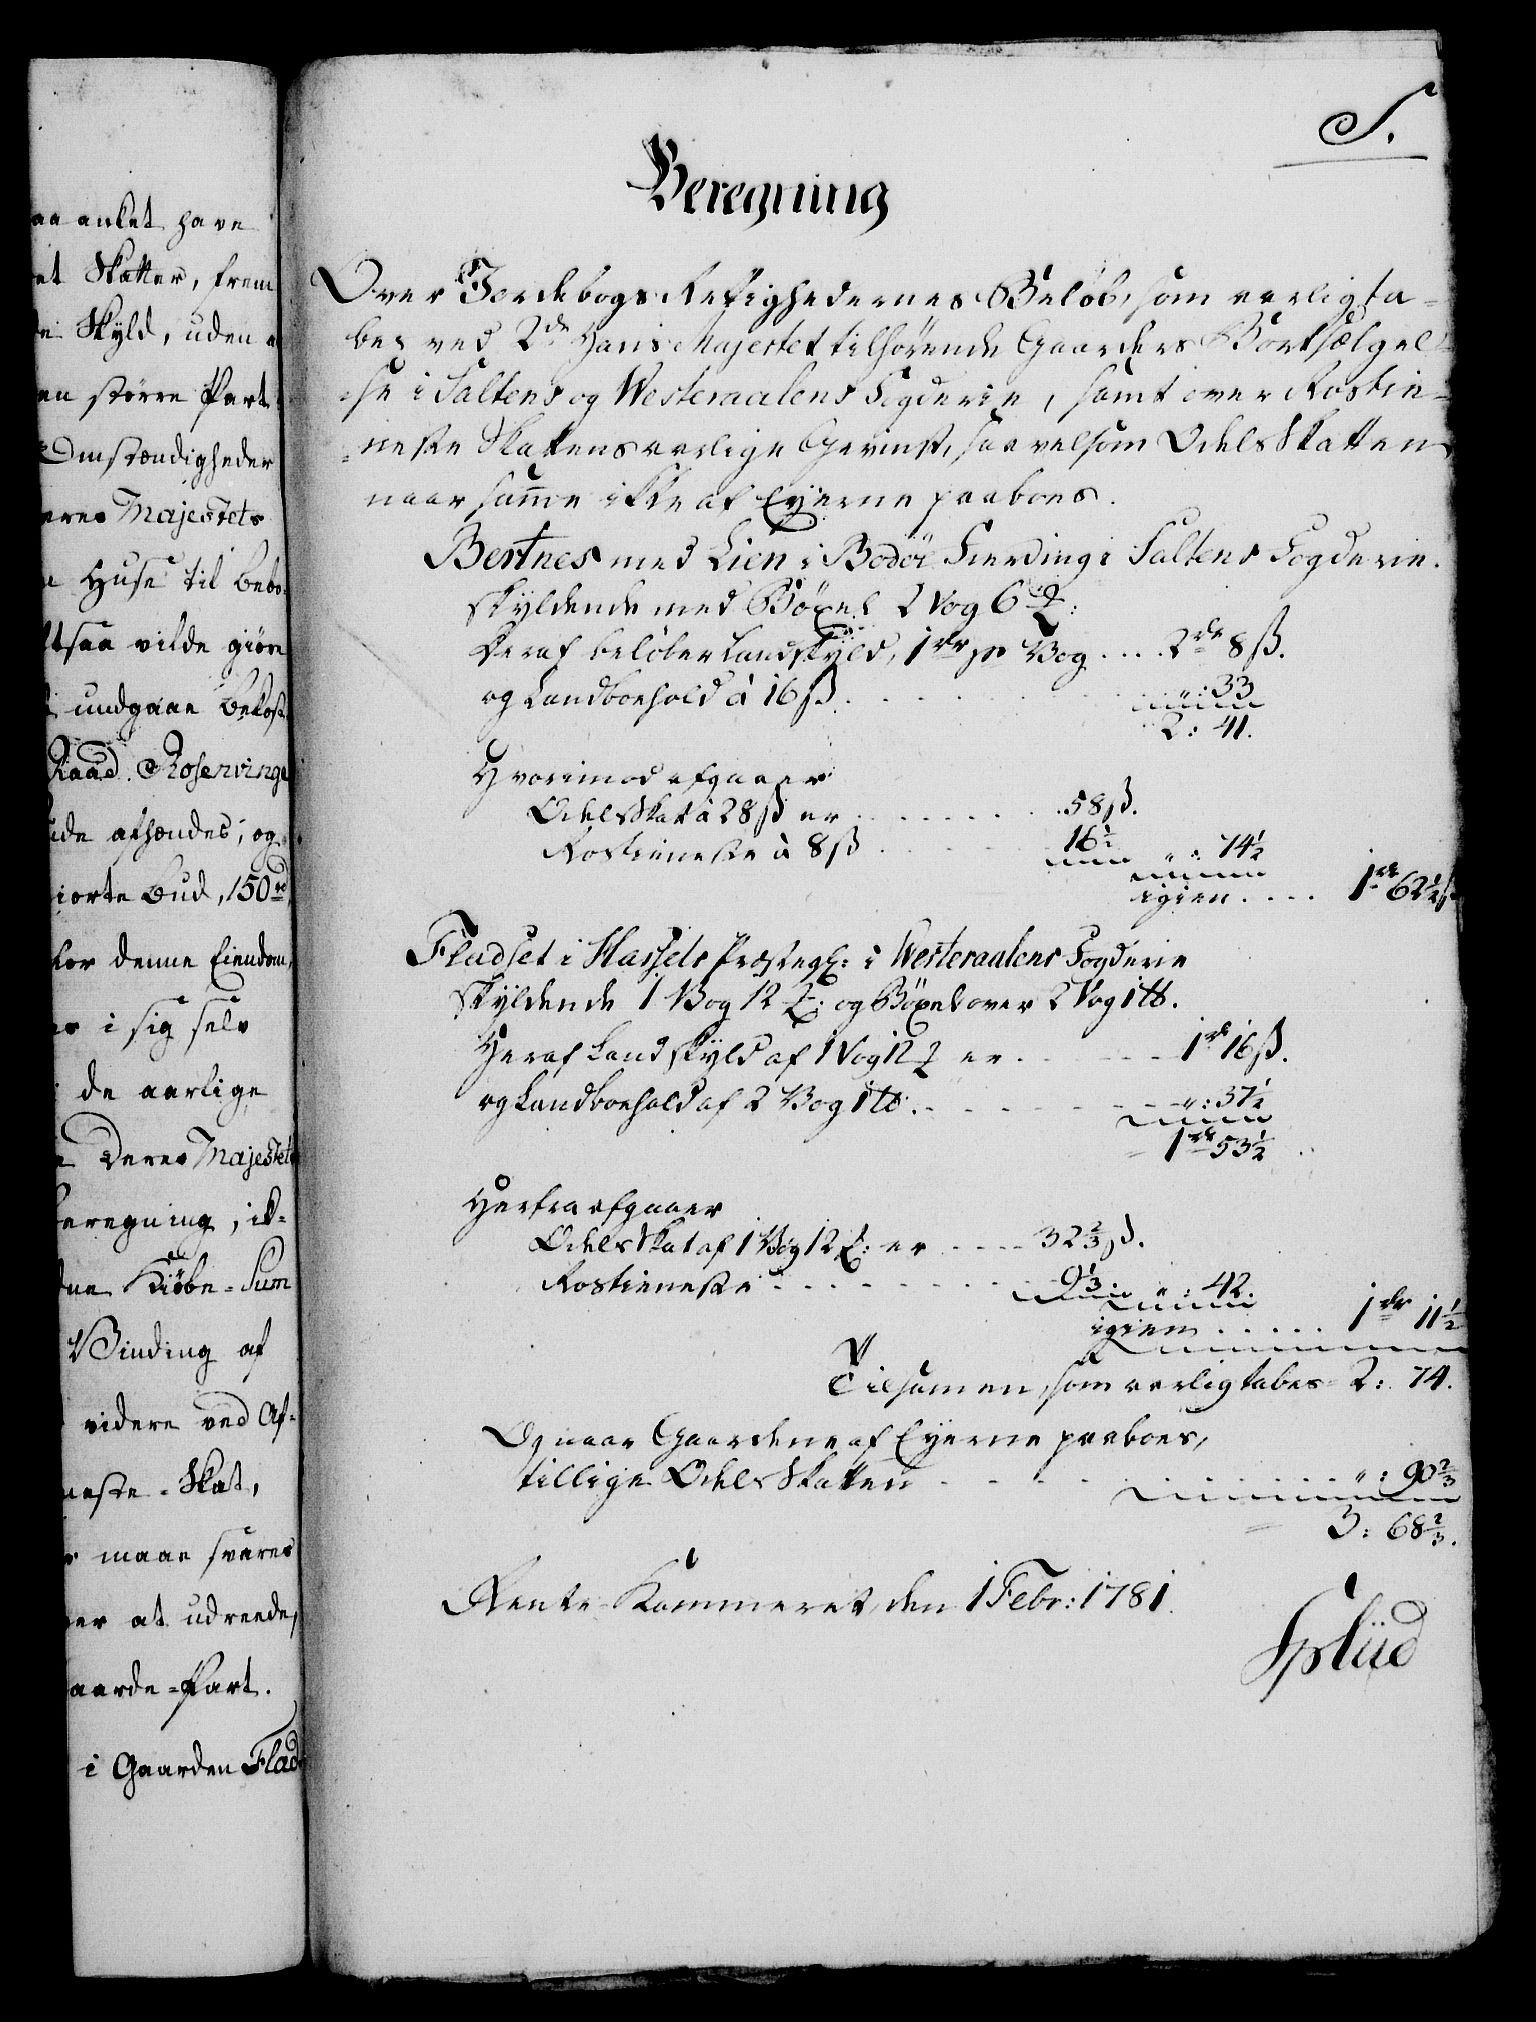 aa anket have
et Skatter, frem
de Skyld, uden
en større Part
Omstændigheder
eres Majestets
Huse til Bebo-
ltsaa vilde giøre
undgaae Bekost
Raad Rosenvinge
ude afhændes, og
iorte Bud, 150 rd
for denne Eiendom,
er i sig selv
de aarlige
Deres Majestets
eregning, ik-
ne Kiøbe-Sum
Binding af
videre ved Af-
neste-Skat,
maae svares
er at udreede,
aarde-Part.
i Gaarden Flad
S.
Beregning
Over Jordebogs Retighedernes Beløb, som aarlig ta-
bes ved 2de Hans Majestet tilhørende Gaarders Bortsælgel-
se i Saltens og Westeraalens Fogderie, samt over Rostie-
neste Skattens aarlige Gevinst, saavelsom Odels Skatten
naar samme ikke af Eyerne paaboes.
Bertnes med Lien i Bodøe Fierding i Saltens Fogderie.
skyldende med Bøxel 2 Vog 6 ℔:
Deraf beløber Landskyld, 1 rdr pr Vog . . . . 2 rdr 8 ß.
og Landboehold à 16 ß . . . . „: 33
2: 41.
Hvorimod afgaaer
Odels Skat à 28 ß er . . . . . 58 ß.
Rostieneste à 8 ß . . . . 16½ „: 74½
igien . . . . 1 rdr 62½ ß
Fladset i Hassels Præstegl: i Westeraalens Fogderie
skyldende 1 Vog 12 ℔: og Bøxel over 2 Vog 1 ℔.
Heraf Landskyld af 1 Vog 12 ℔ er . . . . 1 rdr 16 ß.
og Landboehold af 2 Vog 1 ℔. . . . . „: 37½
1 rdr 53½
Herfra afgaaer
Odels Skat af 1 Vog 12 ℔: er . . . . 32⅔ ß.
Rostieneste . . . . 9⅓ „: 42.
igien . . . . . 1 rdr 11½
Tilsammen, som aarlig tabes 2: 74.
Og naar Gaardene af Eyerne paaboes,
tillige Odels Skatten . . . . „: 90⅔
3: 68⅔.
Rente-Kammeret, den 1 Febr: 1781.